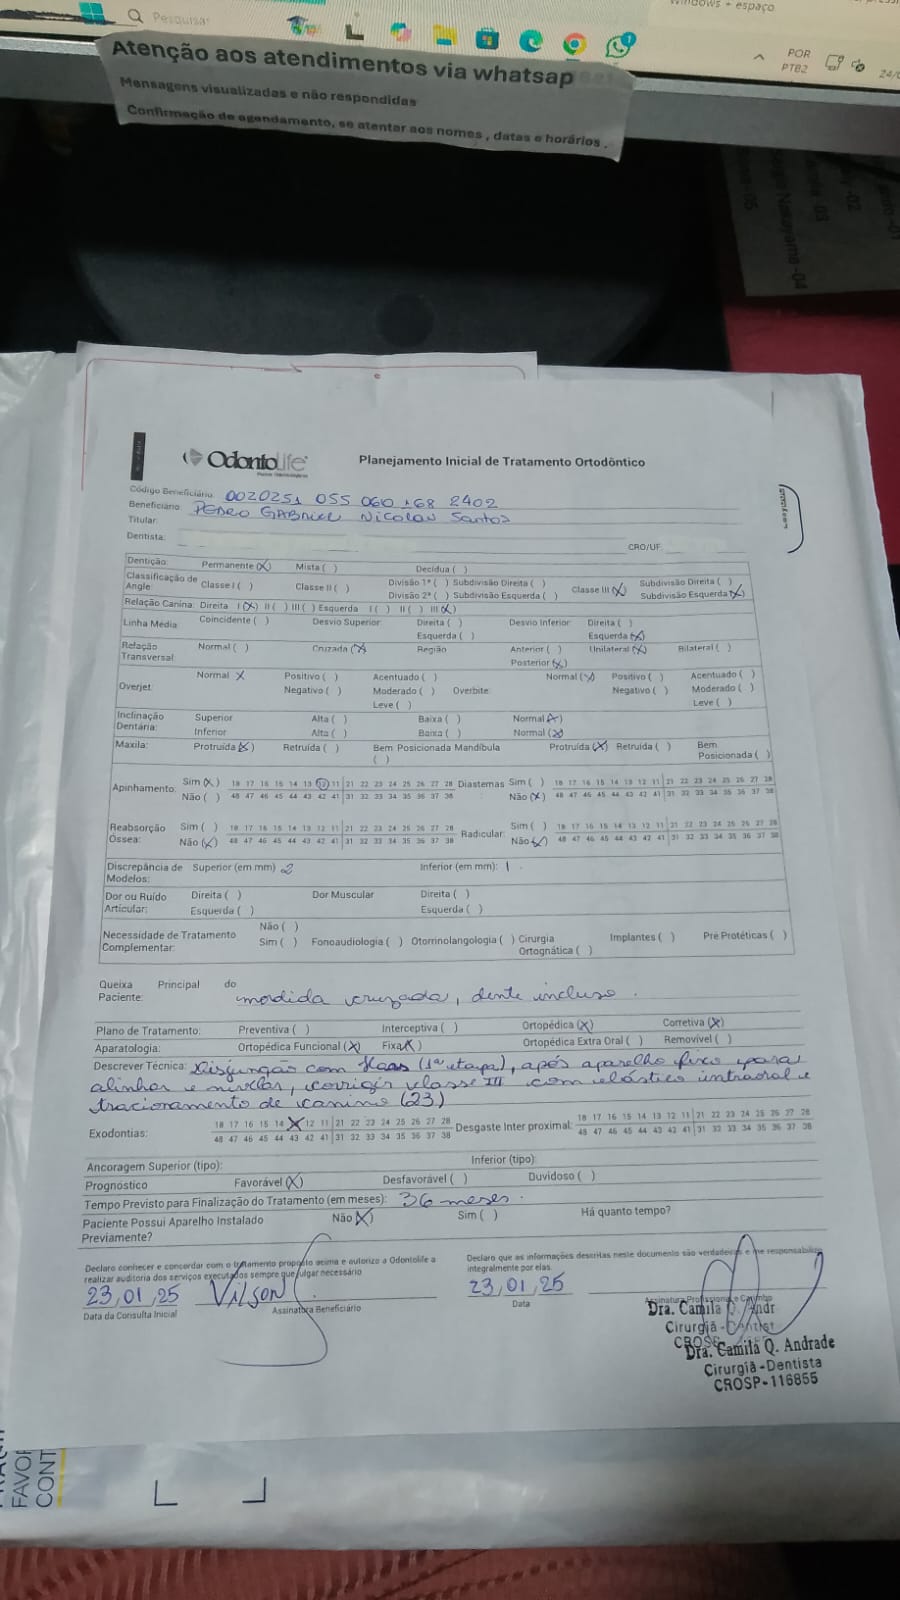 Pesquisar
Windows + espaço
POR
PTB2
24/0
Atenção aos atendimentos via whatsap
Mensagens visualizadas e não respondidas
Confirmação de agendamento, se atentar aos nomes , datas e horários .
OdontoLife
Planejamento Inicial de Tratamento Ortodôntico
Código Beneficiário: 0020251 055 060 168 2402
Beneficiário: Pedro Gabriel Nicolau Santos
Titular:
Dentista: CRO/UF:
Dentição: Permanente (X) Mista ( ) Decídua ( )
Classificação de Angle: Classe I ( ) Classe II ( ) Divisão 1ª ( ) Subdivisão Direita ( ) Classe III (X) Subdivisão Direita ( )
Divisão 2ª ( ) Subdivisão Esquerda ( ) Subdivisão Esquerda (X)
Relação Canina: Direita I (X) II ( ) III ( ) Esquerda I ( ) II ( ) III (X)
Linha Média: Coincidente ( ) Desvio Superior: Direita ( ) Desvio Inferior: Direita ( )
Esquerda ( ) Esquerda (X)
Relação Transversal: Normal ( ) Cruzada (X) Região Anterior ( ) Unilateral (X) Bilateral ( )
Posterior (X)
Overjet: Normal X Positivo ( ) Acentuado ( ) Overbite: Normal (X) Positivo ( ) Acentuado ( )
Negativo ( ) Moderado ( ) Negativo ( ) Moderado ( )
Leve ( ) Leve ( )
Inclinação Dentária: Superior Alta ( ) Baixa ( ) Normal (X)
Inferior Alta ( ) Baixa ( ) Normal (X)
Maxila: Protruída (X) Retruída ( ) Bem Posicionada ( ) Mandíbula Protruída (X) Retruída ( ) Bem Posicionada ( )
Apinhamento: Sim (X) 18 17 16 15 14 13 12 11 21 22 23 24 25 26 27 28 Diastemas Sim ( ) 18 17 16 15 14 13 12 11 21 22 23 24 25 26 27 28
Não ( ) 48 47 46 45 44 43 42 41 31 32 33 34 35 36 37 38 Não (X) 48 47 46 45 44 43 42 41 31 32 33 34 35 36 37 38
Reabsorção Óssea: Sim ( ) 18 17 16 15 14 13 12 11 21 22 23 24 25 26 27 28 Radicular: Sim ( ) 18 17 16 15 14 13 12 11 21 22 23 24 25 26 27 28
Não (X) 48 47 46 45 44 43 42 41 31 32 33 34 35 36 37 38 Não (X) 48 47 46 45 44 43 42 41 31 32 33 34 35 36 37 38
Discrepância de Modelos: Superior (em mm) 2 Inferior (em mm): 1
Dor ou Ruído Articular: Direita ( ) Dor Muscular Direita ( )
Esquerda ( ) Esquerda ( )
Necessidade de Tratamento Complementar: Não ( )
Sim ( ) Fonoaudiologia ( ) Otorrinolangologia ( ) Cirurgia Ortognática ( ) Implantes ( ) Pré Protéticas ( )
Queixa Principal do Paciente: mordida cruzada, dente incluso.
Plano de Tratamento: Preventiva ( ) Interceptiva ( ) Ortopédica (X) Corretiva (X)
Aparatologia: Ortopédica Funcional (X) Fixa (X) Ortopédica Extra Oral ( ) Removível ( )
Descrever Técnica: Disjunção com Haas (1ª etapa), após aparelho fixo para
alinhar e nivelar, corrigir classe III com elástico intraoral e
tracionamento de canino (23)
Exodontias: 18 17 16 15 14 12 11 21 22 23 24 25 26 27 28 Desgaste Inter proximal: 18 17 16 15 14 13 12 11 21 22 23 24 25 26 27 28
48 47 46 45 44 43 42 41 31 32 33 34 35 36 37 38 48 47 46 45 44 43 42 41 31 32 33 34 35 36 37 38
Ancoragem Superior (tipo): Inferior (tipo):
Prognóstico Favorável (X) Desfavorável ( ) Duvidoso ( )
Tempo Previsto para Finalização do Tratamento (em meses): 36 meses.
Paciente Possui Aparelho Instalado Previamente? Não (X) Sim ( ) Há quanto tempo?
Declaro conhecer e concordar com o tratamento proposto acima e autorizo a Odontolife a
realizar auditoria dos serviços executados sempre que julgar necessário
Declaro que as informações descritas neste documento são verdadeiras e me responsabilizo
integralmente por elas.
23/01/25 Vilson
Data da Consulta Inicial Assinatura Beneficiário
23/01/25
Data Assinatura Profissional e Carimbo
Dra. Camila Q. Andr
Cirurgiã - Dentist
CROS
Dra. Camila Q. Andrade
Cirurgiã - Dentista
CROSP-116855
FAVOR
CONT